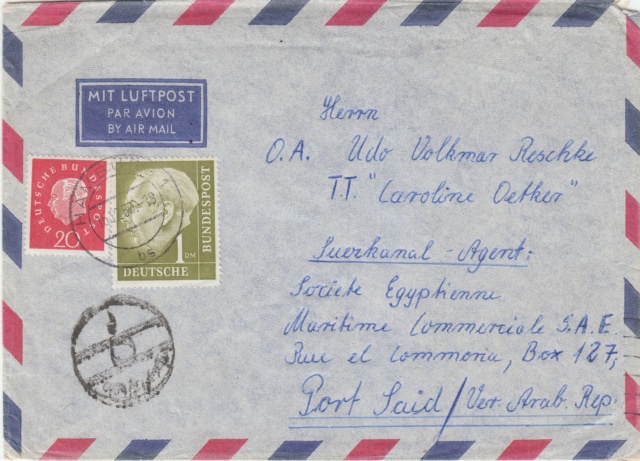 MIT LUFTPOST
PAR AVION
BY AIR MAIL
DEUTSCHE BUNDESPOST
20
1 DM
DEUTSCHE
BUNDESPOST
Herrn
O.A. Udo Volkmar Reschke
TT. "Caroline Oetker"
Suezkanal-Agent:
Societe Egyptienne
Maritime Commerciale S.A.E.
Rue el Commoria, Box 127,
Port Said / Ver. Arab. Rep.